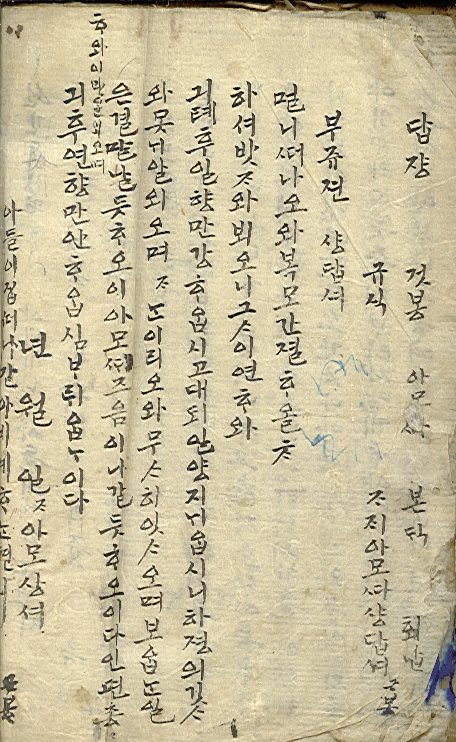 답쟝 것봉 아모 본댁 회납
규식 ᄌᆞ지아모ᄯᅡ샹답셔 근봉
부쥬젼 샹답셔
멀니ᄯᅥ나오와복모간졀ᄒᆞ올ᄎᆞ
하셔밧ᄌᆞ와뵈오니그ᄉᆞ이연ᄒᆞ와
긔톄후일향만강ᄒᆞ옵시고대되안양지ᄂᆡ옵시니하졍의깃ᄉᆞ
와못ᄂᆡ알외오며ᄌᆞᄂᆞᆫ이리오와무ᄉᆞ히잇ᄉᆞ오며보옵ᄂᆞᆫ일
은결말날듯ᄒᆞ오이아모ᄶᅢ즈음이나갈듯ᄒᆞ오이다인편총
ᄒᆞ와이만알외오며
긔후연향만안ᄒᆞ옵심ᄇᆞ라옵ᄂᆞ이다
년 월 일ᄌᆞ아모상셔
아들이집ᄯᅥ나간아비게